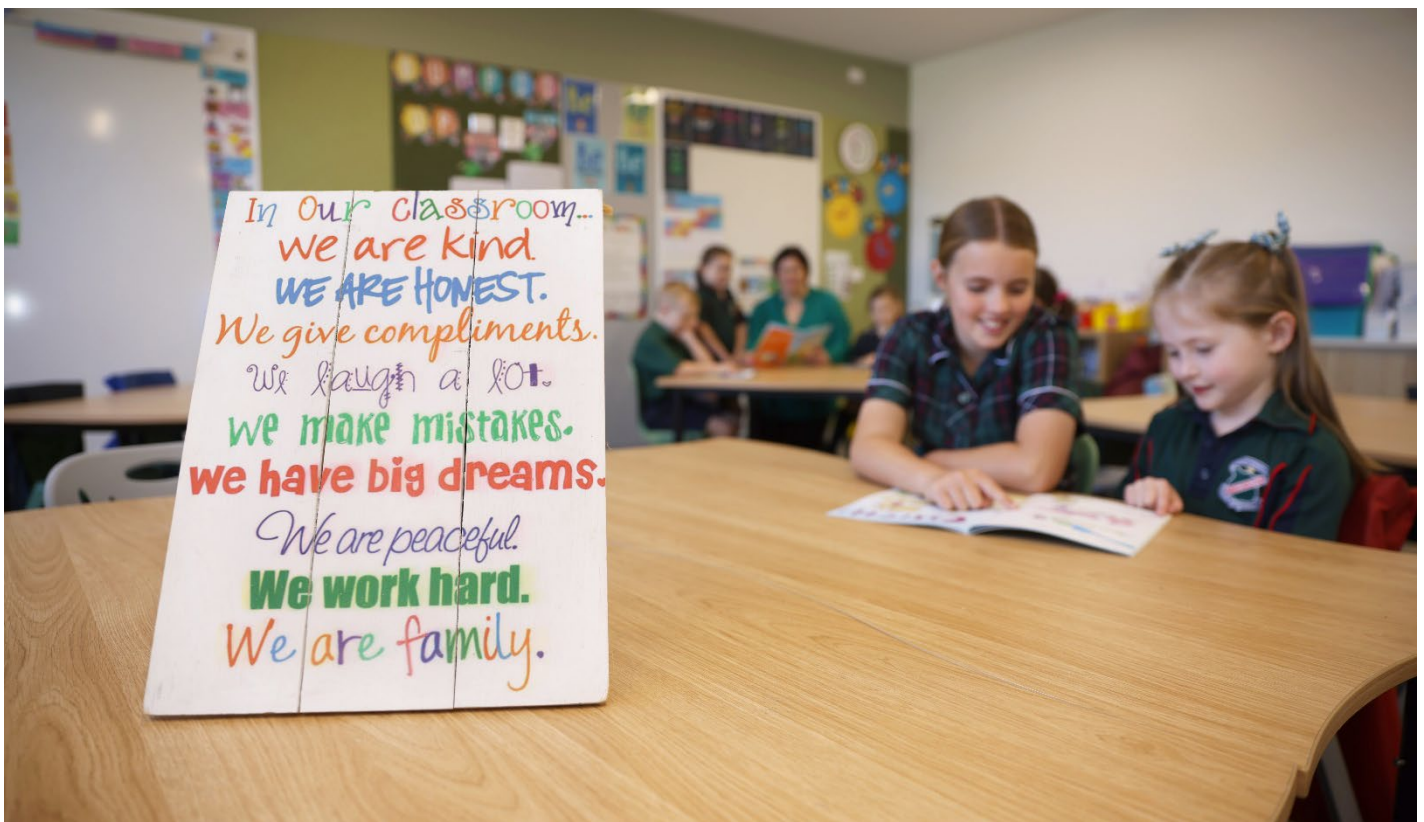 In our classroom...
we are kind
WE ARE HONEST.
We give compliments.
We laugh a lot.
we make mistakes.
we have big dreams.
We are peaceful.
We work hard.
We are family.